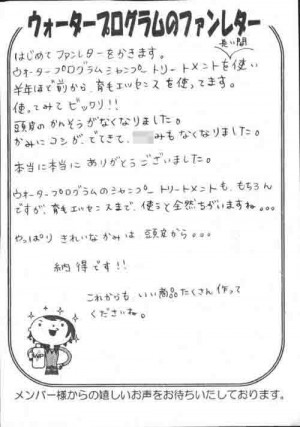 ウォータープログラムのファンレター
はじめてファンレターをかきます。
長い間
ウォータープログラムシャンプー トリートメントを使い
半年ほど前から、育毛エッセンスを使ってます。
使ってみてビックリ!!
頭皮のかんそうがなくなりました。
かみにコシが、でてきて、みもなくなりました。
本当に本当に ありがとうございました。
ウォータープログラムのシャンプー トリートメントも、もちろん
ですが、育毛エッセンスまで、使うと全然ちがいますね。。。
やっぱり きれいなかみは 頭皮から。。。
納得です!!
これからも、いい商品たくさん作って
くださいね。
メンバー様からの嬉しいお声をお待ちいたしております。